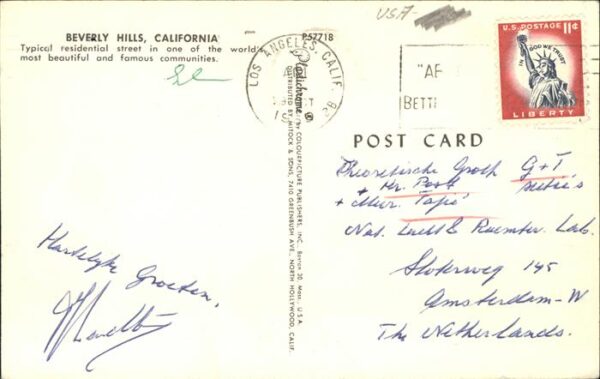 USA
BEVERLY HILLS, CALIFORNIA
Typical residential street in one of the world's
most beautiful and famous communities.
P57718
LOS ANGELES, CALIF.
"AF
BETTI
U.S. POSTAGE 11¢
IN GOD WE TRUST
LIBERTY
Plastichrome ® by COLOURPICTURE PUBLISHERS, INC., Boston 30, Mass., U.S.A.
DISTRIBUTED BY MITOCK & SONS, 7410 GREENBUSH AVE., NORTH HOLLYWOOD, CALIF.
POST CARD
Theoretische Groep G+T
+ Hr. Post
+ Mevr.
Nat. Lucht & Ruimtev. Lab.
Sloterweg 145
Amsterdam-W
The Netherlands.
Hartelijke Groeten,